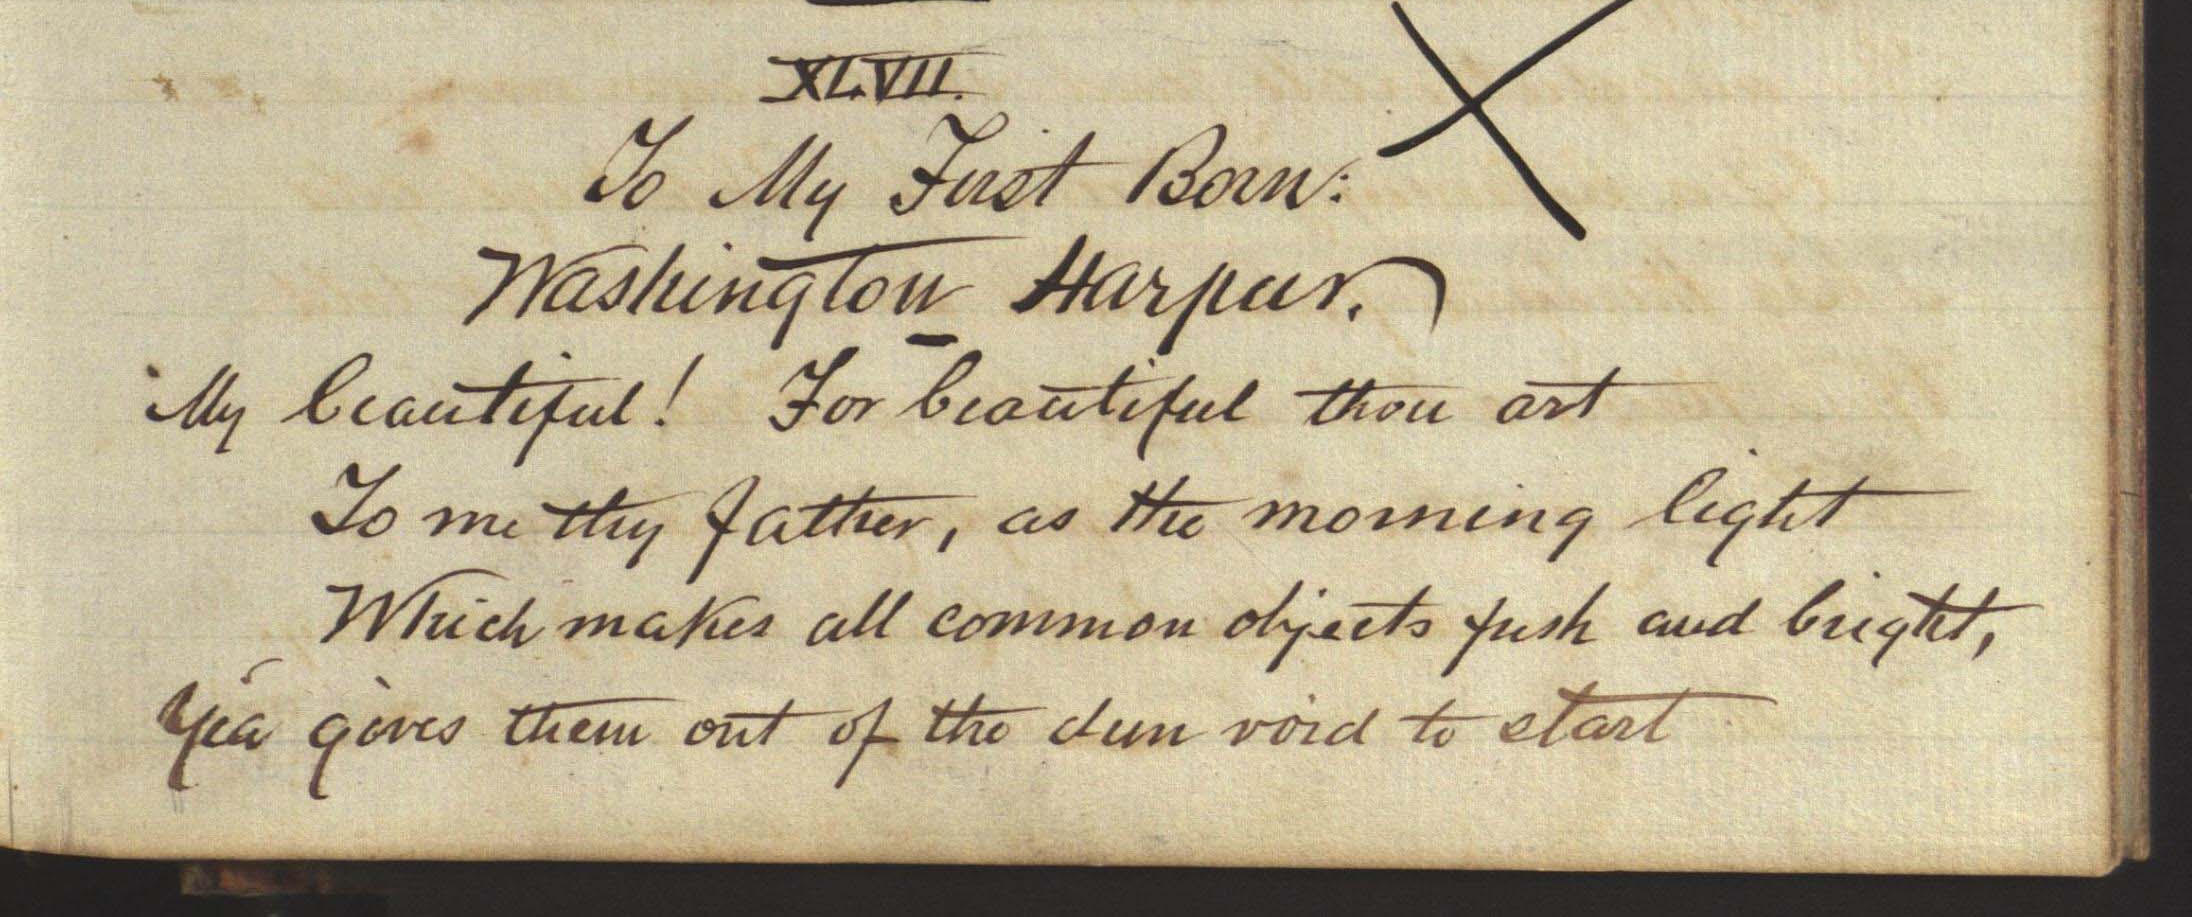 XLVII.
To My First Born:
Washington Harpur.
My beautiful! For beautiful thou art
To me thy father, as the morning light
Which makes all common objects fresh and bright,
Yea gives them out of the dun void to start